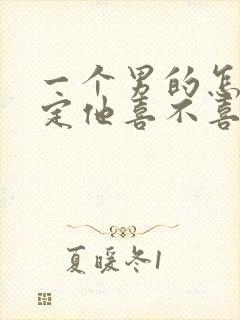 一个男的怎
定他喜不喜
夏暖冬1